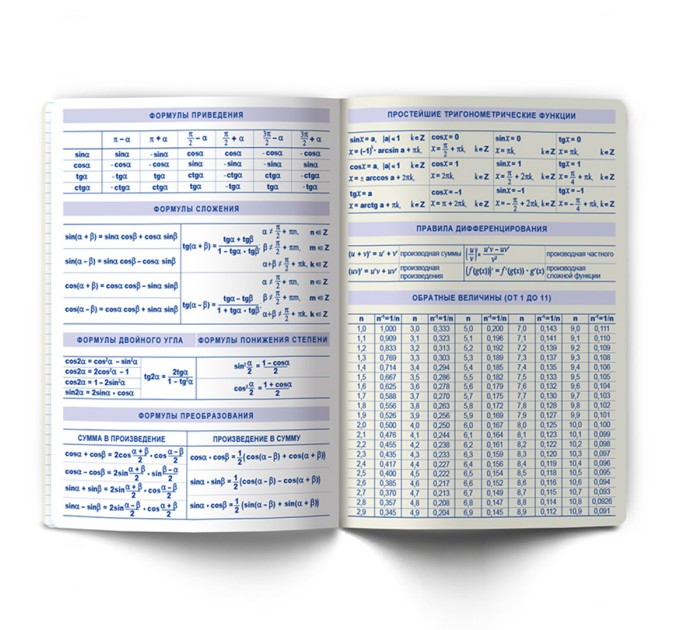 ФОРМУЛЫ ПРИВЕДЕНИЯ
π – α π + α π/2 – α π/2 + α 3π/2 – α 3π/2 + α
sinα sinα - sinα cosα cosα - cosα - cosα
cosα - cosα - cosα sinα - sinα - sinα sinα
tgα - tgα tgα ctgα - ctgα ctgα - ctgα
ctgα - ctgα ctgα tgα - tgα tgα - tgα
ФОРМУЛЫ СЛОЖЕНИЯ
sin(α + β) = sinα cosβ + cosα sinβ
sin(α – β) = sinα cosβ – cosα sinβ
cos(α + β) = cosα cosβ – sinα sinβ
cos(α – β) = cosα cosβ + sinα sinβ
tg(α + β) = (tgα + tgβ)/(1 – tgα · tgβ)
α ≠ π/2 + πn, n∈Z
β ≠ π/2 + πm, m∈Z
α+β ≠ π/2 + πk, k∈Z
tg(α – β) = (tgα – tgβ)/(1 + tgα · tgβ)
ФОРМУЛЫ ДВОЙНОГО УГЛА
cos2α = cos²α – sin²α
cos2α = 2cos²α – 1
cos2α = 1 – 2sin²α
sin2α = 2sinα · cosα
tg2α = 2tgα/(1 – tg²α)
ФОРМУЛЫ ПОНИЖЕНИЯ СТЕПЕНИ
sin²α/2 = (1 – cosα)/2
cos²α/2 = (1 + cosα)/2
ФОРМУЛЫ ПРЕОБРАЗОВАНИЯ
СУММА В ПРОИЗВЕДЕНИЕ
cosα + cosβ = 2cos(α + β)/2 · cos(α – β)/2
cosα – cosβ = 2sin(α + β)/2 · sin(β – α)/2
sinα + sinβ = 2sin(α + β)/2 · cos(α – β)/2
sinα – sinβ = 2sin(α – β)/2 · cos(α + β)/2
ПРОИЗВЕДЕНИЕ В СУММУ
cosα · cosβ = 1/2 (cos(α – β) + cos(α + β))
sinα · sinβ = 1/2 (cos(α – β) – cos(α + β))
sinα · cosβ = 1/2 (sin(α – β) + sin(α + β))
ПРОСТЕЙШИЕ ТРИГОНОМЕТРИЧЕСКИЕ ФУНКЦИИ
sinx = a, |a| < 1 k∈Z cosx = 0 sinx = 0 tgx = 0
x = (-1)ᵏ · arcsin a + πk, x = π/2 + πk, k∈Z x = πk, k∈Z x = πk, k∈Z
cosx = a, |a| < 1 k∈Z cosx = 1 sinx = 1 tgx = 1
x = ± arccos a + 2πk, x = 2πk, k∈Z x = π/2 + 2πk, k∈Z x = π/4 + πk, k∈Z
tgx = a cosx = –1 sinx = –1 tgx = –1
x = arctg a + πk, k∈Z x = π + 2πk, k∈Z x = – π/2 + 2πk, k∈Z x = – π/4 + πk, k∈Z
ПРАВИЛА ДИФФЕРЕНЦИРОВАНИЯ
(u + v)' = u' + v' производная суммы (u/v)' = (u'v – uv')/v² производная частного
(uv)' = u'v + uv' производная произведения (f (g(x)))' = f '(g(x)) · g'(x) производная сложной функции
ОБРАТНЫЕ ВЕЛИЧИНЫ (ОТ 1 ДО 11)
n n⁻¹=1/n n n⁻¹=1/n n n⁻¹=1/n n n⁻¹=1/n n n⁻¹=1/n
1,0 1,000 3,0 0,333 5,0 0,200 7,0 0,143 9,0 0,111
1,1 0,909 3,1 0,323 5,1 0,196 7,1 0,141 9,1 0,110
1,2 0,833 3,2 0,313 5,2 0,192 7,2 0,139 9,2 0,109
1,3 0,769 3,3 0,303 5,3 0,189 7,3 0,137 9,3 0,108
1,4 0,714 3,4 0,294 5,4 0,185 7,4 0,135 9,4 0,106
1,5 0,667 3,5 0,286 5,5 0,182 7,5 0,133 9,5 0,105
1,6 0,625 3,6 0,278 5,6 0,179 7,6 0,132 9,6 0,104
1,7 0,588 3,7 0,270 5,7 0,175 7,7 0,130 9,7 0,103
1,8 0,556 3,8 0,263 5,8 0,172 7,8 0,128 9,8 0,102
1,9 0,526 3,9 0,256 5,9 0,169 7,9 0,127 9,9 0,101
2,0 0,500 4,0 0,250 6,0 0,167 8,0 0,125 10,0 0,100
2,1 0,476 4,1 0,244 6,1 0,164 8,1 0,123 10,1 0,099
2,2 0,455 4,2 0,238 6,2 0,161 8,2 0,122 10,2 0,098
2,3 0,435 4,3 0,233 6,3 0,159 8,3 0,120 10,3 0,097
2,4 0,417 4,4 0,227 6,4 0,156 8,4 0,119 10,4 0,096
2,5 0,400 4,5 0,222 6,5 0,154 8,5 0,118 10,5 0,095
2,6 0,385 4,6 0,217 6,6 0,152 8,6 0,116 10,6 0,094
2,7 0,370 4,7 0,213 6,7 0,149 8,7 0,115 10,7 0,093
2,8 0,357 4,8 0,208 6,8 0,147 8,8 0,114 10,8 0,0926
2,9 0,345 4,9 0,204 6,9 0,145 8,9 0,112 10,9 0,091